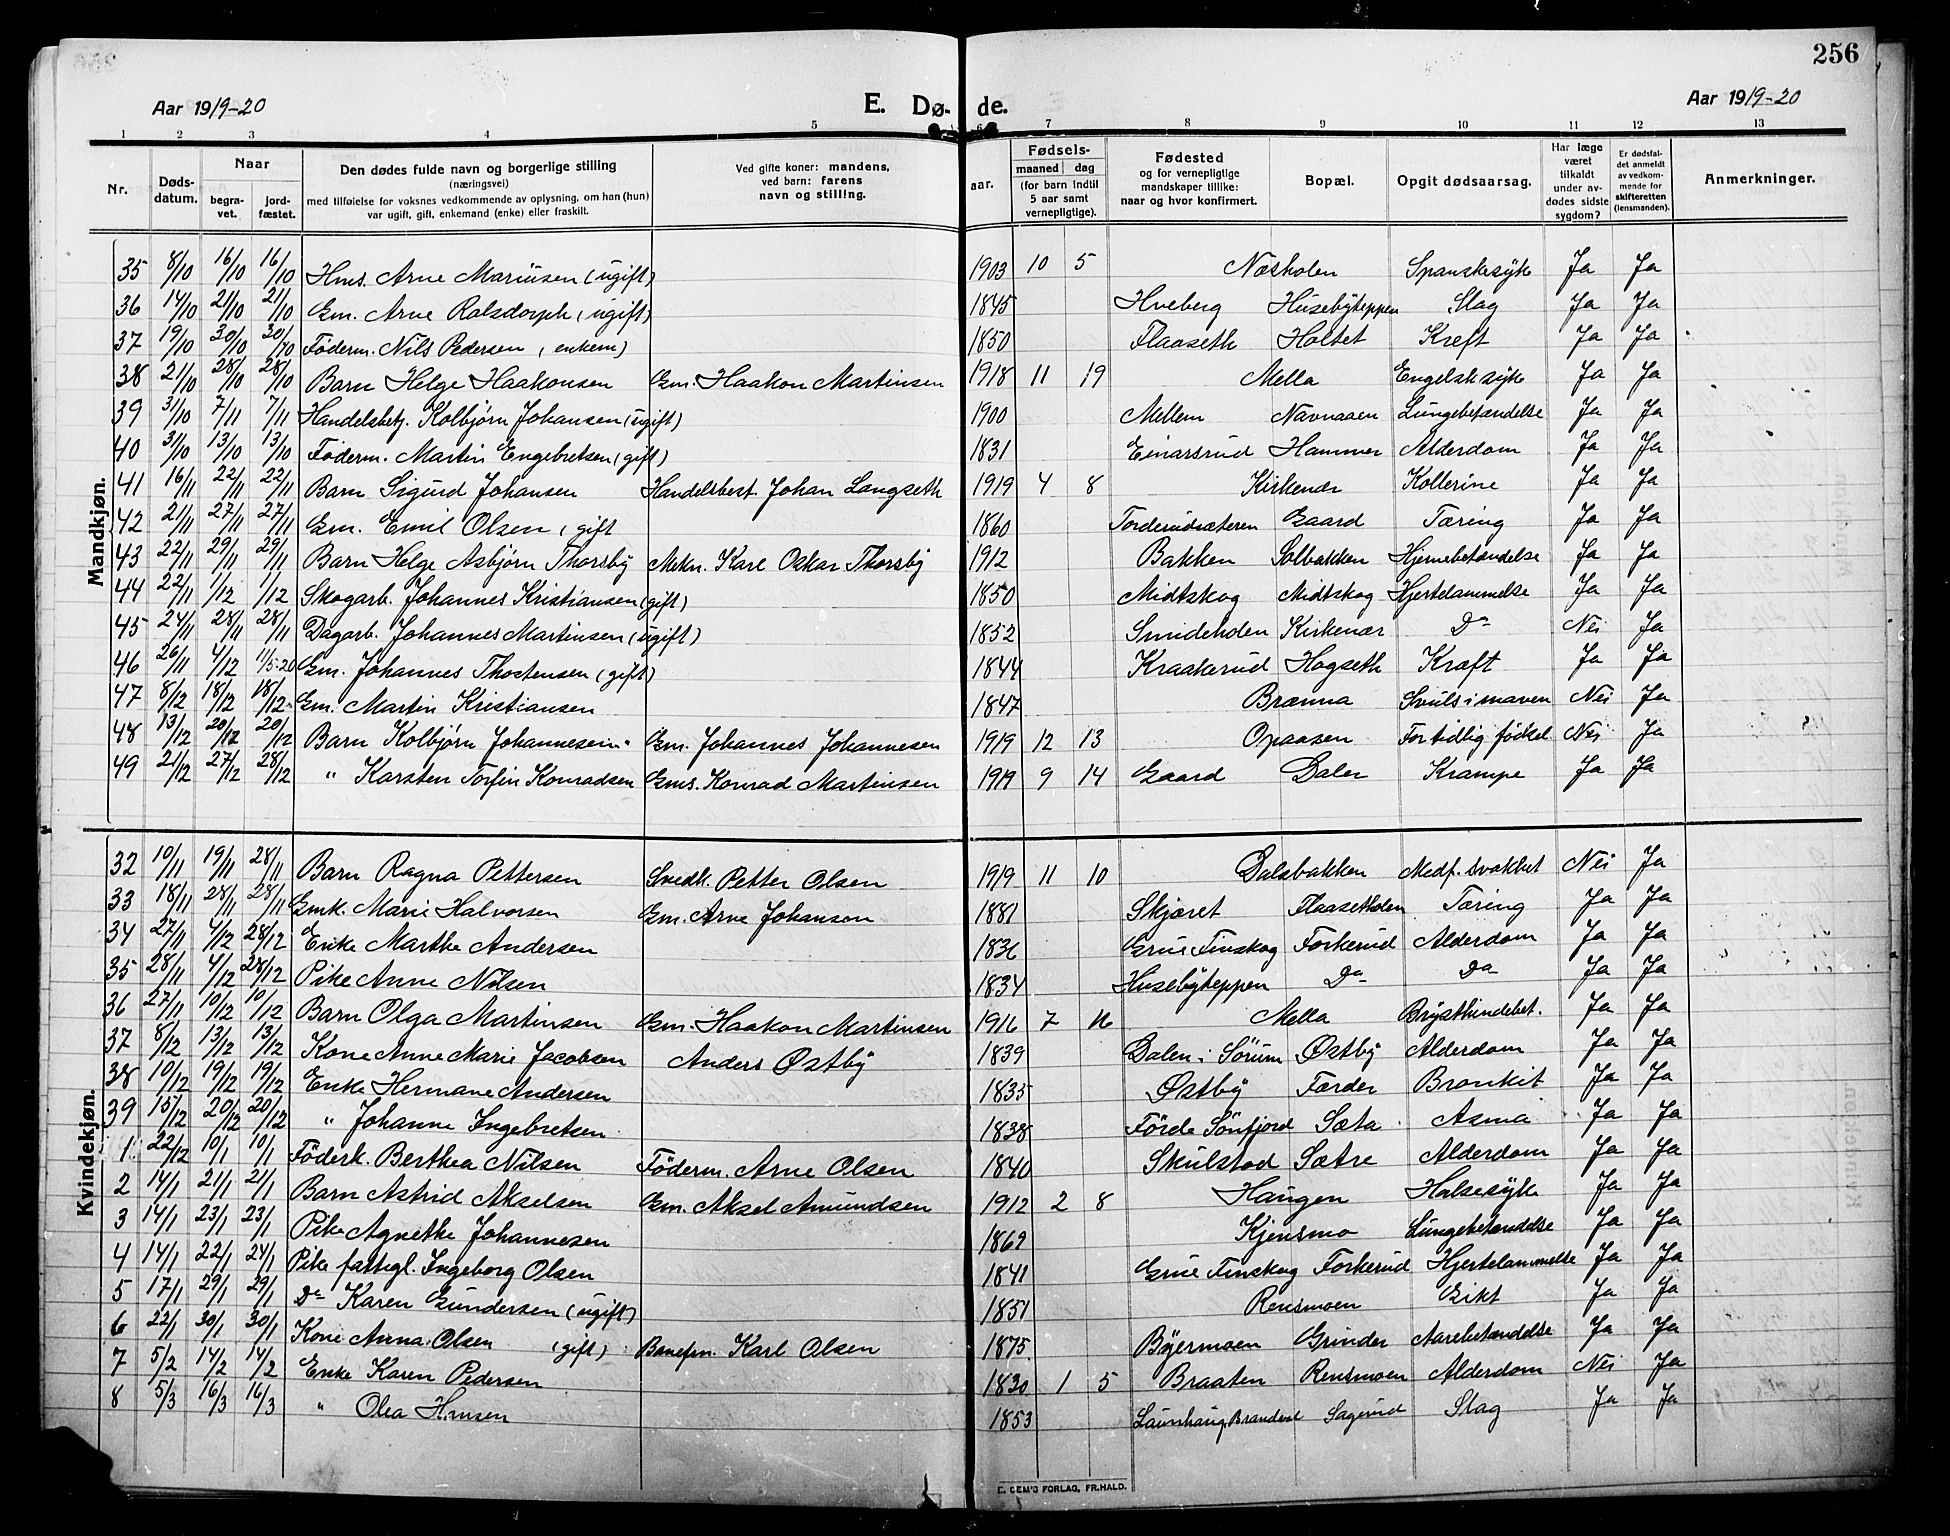 256
Aar 1919-20 E. Døde. Aar 1919-20
1 2 3 4 5 6 7 8 9 10 11 12 13
Nr. Døds-datum. Naar begra-vet. jord-fæstet. Den dødes fulde navn og borgerlige stilling (næringsvei) med tilføielse for voksnes vedkommende av oplysning, om han (hun) var ugift, gift, enkemand (enke) eller fraskilt. Ved gifte koner: mandens, ved barn: farens navn og stilling. aar. Fødsels- maaned dag (for barn indtil 5 aar samt vernepligtige). Fødested og for vernepligtige mandskaper tillike: naar og hvor konfirmert. Bopæl. Opgit dødsaarsag. Har læge været tilkaldt under av-dødes sidste sygdom? Er dødsfal-det anmeldt av vedkom-mende for skifteretten (lensmanden). Anmerkninger.
Mandkjøn.
35 8/10 16/10 16/10 Hms. Arne Mariusen (ugift) 1903 10 5 Næsholen Spanskesyke Ja Ja
36 14/10 21/10 21/10 Gm. Arne Rolsdorph (ugift) 1845 Hveberg Husebyteppen Slag Ja Ja
37 19/10 30/10 30/10 Føderm. Nils Pedersen (enkem) 1850 Flaaseth Holtet Kræft Ja Ja
38 21/10 28/10 28/10 Barn Helge Haakonsen Gm. Haakon Martinsen 1918 11 19 Mella Engelsksyke Ja Ja
39 31/10 7/11 7/11 Handelsbetj. Kolbjørn Johansen (ugift) 1900 Mellem Navnaaen Lungebetændelse Ja Ja
40 31/10 13/10 13/10 Føderm. Martin Engebretsen (gift) 1831 Einarsrud Hammer Alderdom Ja Ja
41 16/11 22/11 22/11 Barn Sigurd Johansen Handelsbest. Johan Langseth 1919 4 8 Kirkenær Kollerine Ja Ja
42 21/11 27/11 27/11 Gm. Emil Olsen (gift 1860 Torderudsæteren Gaard Tæring Ja Ja
43 22/11 29/11 29/11 Barn Helge Asbjørn Thorsby Mekn. Karl Oskar Thorsby 1912 Bakken Solbakken Hjernebetændelse Ja Ja
44 22/11 1/12 1/12 Skogarb. Johannes Kristiansen (gift) 1850 Midtskog Midtskog Hjertelammelse Ja Ja
45 24/11 28/11 28/11 Dagarb. Johannes Martinsen (ugift) 1852 Smideholen Kirkenær Do Nei Ja
46 26/11 4/12 11/5-20 Gm. Johannes Thostensen (gift) 1844 Kraakerud Hogseth Kræft Ja Ja
47 8/12 18/12 18/12 Gm. Martin Kristiansen 1847 Brænna Svuls i maven Nei Ja
48 13/12 20/12 20/12 Barn Kolbjørn Johannesen Gm. Johannes Johannesen 1919 12 13 Opaasen For tidlig fødsel Nei Ja
49 21/12 27/12 28/12 " Karsten Torfin Konradsen Gms. Konrad Martinsen 1919 9 14 Gaard Daler Krampe Ja Ja
Kvindekjøn.
32 10/11 19/11 28/11 Barn Ragna Pettersen Snedk. Petter Olsen 1919 11 10 Dalsbakken Medf. svakhet Nei Ja
33 18/11 28/11 28/11 Gmk. Marie Halvorsen Gm. Arne Johansen 1881 Skjæret Flaasetholen Tæring Ja Ja
34 27/11 4/12 28/12 Enke Marthe Andersen 1836 Grue Finskog Forkerud Alderdom Ja Ja
35 28/11 4/12 28/12 Pike Anne Nilsen 1834 Husebyteppen Do Do Ja Ja
36 27/11 10/12 10/12 Barn Olga Martinsen Gm. Haakon Martinsen 1916 7 16 Mella Brysthindebet. Ja Ja
37 8/12 13/12 13/12 Kone Anne Marie Jacobsen Anders Østby 1839 Dalen i Sørum Østby Alderdom Ja Ja
38 10/12 19/12 19/12 Enke Hermane Andersen 1835 Østby Færder Bronkit Ja Ja
39 15/12 20/12 20/12 " Johanne Ingebretsen 1838 Førde Sönfjord Sæta Asma Ja Ja
1 22/12 10/1 10/1 Föderk. Berthea Nilsen Föderm. Arne Olsen 1840 Skulstad Sætre Alderdom Ja Ja
2 14/1 21/1 21/1 Barn Astrid Akselsen Gm. Aksel Amundsen 1912 2 8 Haugen Halsesyke Ja Ja
3 14/1 23/1 23/1 Pike Agnethe Johannesen 1869 Kjensmo Lungebetændelse Ja Ja
4 14/1 22/1 24/1 Pike fattigl. Ingeborg Olsen 1841 Grue Finskog Forkerud Hjertelammelse Ja Ja
5 17/1 29/1 29/1 Do Karen Gundersen (ugift) 1851 Rensmoen Gikt Ja Ja
6 22/1 30/1 30/1 Kone Anna Olsen (gift) Banefm. Karl Olsen 1875 Böjermoen Grinder Aarebetændelse Ja Ja
7 5/2 14/2 14/2 Enke Karen Pedersen 1830 1 5 Braaten Rensmoen Alderdom Nei Ja
8 5/3 16/3 16/3 " Olea Hansen 1853 Brandval Sagerud Slag Ja Ja
E. SEM'S FORLAG, FR.HALD.